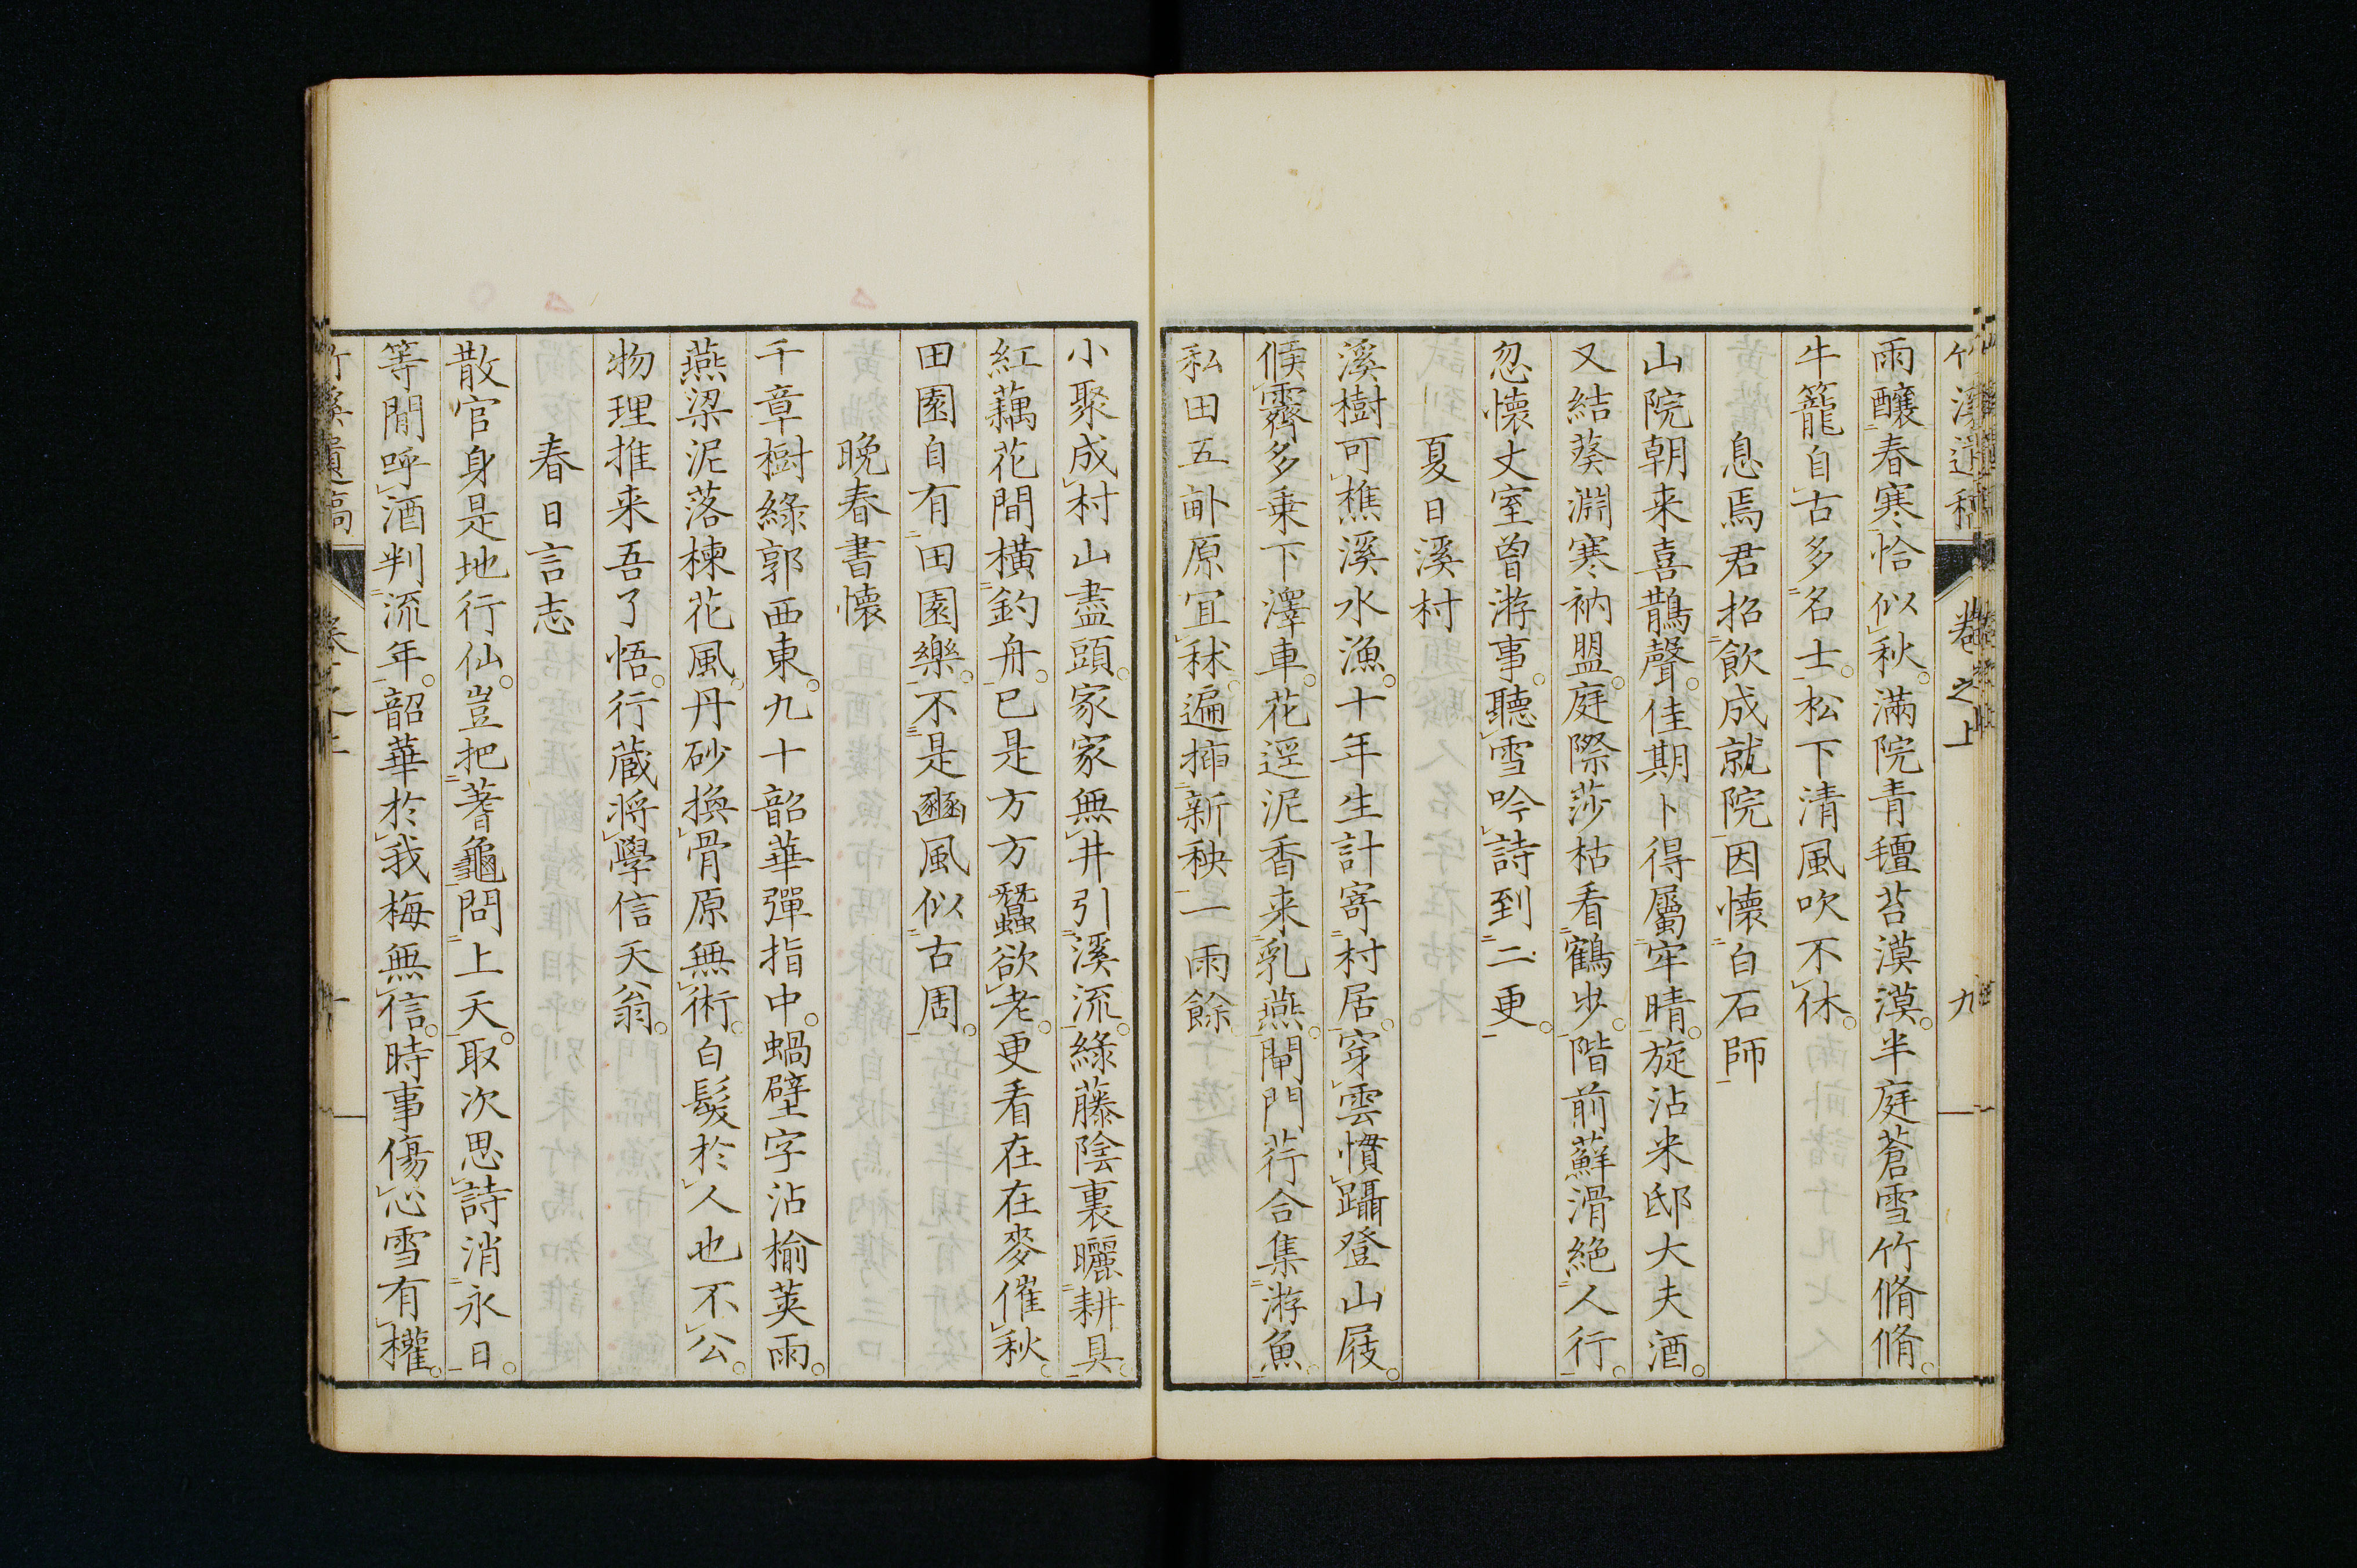 雨釀春寒恰似秋。滿院青氊苔漠漠。半庭蒼雪竹翛翛。
牛籠自古多名士。松下清風吹不休。
息焉君招飲成就院因懷白石師
山院朝来喜鵲聲。佳期卜得屬牢晴。旋沽米邸大夫酒。
又結葵淵寒衲盟。庭際莎枯看鶴步。階前蘚滑絕人行。
忽懷丈室曾游事。聽雪吟詩到二更。
夏日溪村
溪樹可樵溪水漁。十年生計寄村居。穿雲慣躡登山屐。
候霽多乗下澤車。花逕泥香来乳燕。閘門荇合集游魚。
私田五畝原宜秫。遍揷新秧一雨餘
卷之上
九
小聚成村山盡頭。家家無井引溪流。綠藤陰裏曬耕具。
紅藕花間橫釣舟。已是方方蠶欲老。更看在在麥催秋。
田園自有田園樂。不是豳風似古周。
晚春書懷
千章樹綠郭西東。九十韶華彈指中。蝸壁字沾榆莢雨。
燕梁泥落楝花風。丹砂換骨原無術。白髮於人也不公。
物理推来吾了悟。行藏將學信天翁。
春日言志
散官身是地行仙。豈把蓍龜問上天。取次思詩消永日。
等閒呼酒判流年。韶華於我梅無信。時事傷心雪有權。